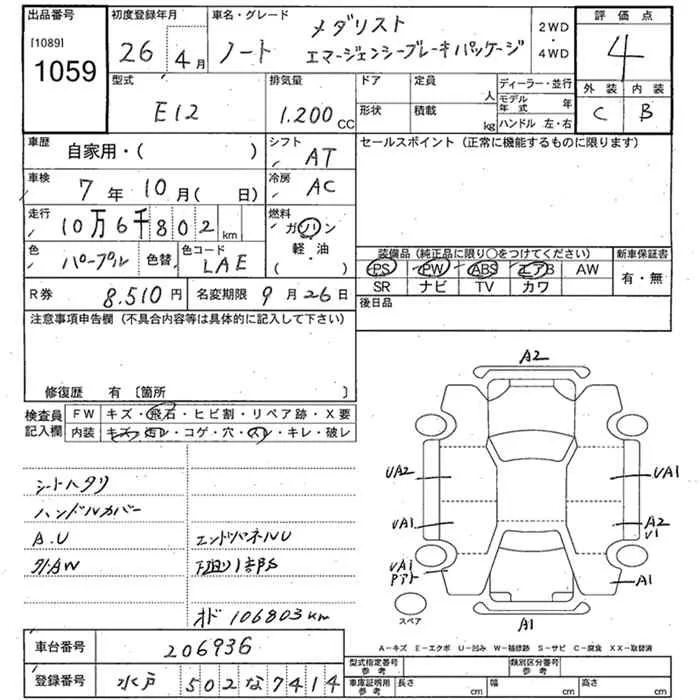 出品番号 初度登録年月 車名・グレード 評価点
[1089]
1059
26年4月
ノート メダリスト
エマージェンシーブレーキパッケージ
2WD
・
4WD
4
外装 内装
C B
型式 排気量 ドア 定員 ディーラー・並行
E12 1.200CC 人 モデル年式 年
形状 積載 kg ハンドル 左・右
車歴 自家用・( ) シフト AT
セールスポイント (正常に機能するものに限ります)
車検 7年10月(日) 冷房 AC
走行 10万6千802km 燃料 ガソリン・軽・油( )
色 パープル 色替 色コード LAE
装備品 (純正品に限り○をつけてください) 新車保証書
PS PW ABS エアB AW 有・無
SR ナビ TV カワ
R券 8.510円 名変期限 9月26日
後日品
注意事項申告欄 (不具合内容等は具体的に記入して下さい)
修復歴 有 〔箇所 〕
検査員記入欄 FW キズ・飛石・ヒビ割・リペア跡・X要
内装 キズ・汚レ・コゲ・穴・スレ・キレ・破レ
シートヘタリ
ハンドルカバー
A.U エンドパネルU
外AW
オド 106803km
A2
UA2 UA1
UA1 A2
U1
UA1
A1
A1
スペア
A-キズ E-エクボ U-凹み W-補修跡 S-サビ C-腐食 XX-取替済
車台番号 206936
登録番号 水戸 502な7414
型式指定番号 参考 類別区分番号 参考
車庫証明用 参考 長さ cm 幅 cm 高さ cm